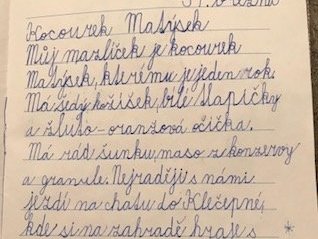 března
Kocourek Matýsek
Můj mazlíček je kocourek
Matýsek, kterému je jeden rok.
Má šedý kožíšek, bílé tlapičky
a žluto-oranžová očička.
Má rád šunku, maso z konzervy
a granule. Nejraději s námi
jezdí na chatu do Klečepné,
kde si na zahradě hraje s *